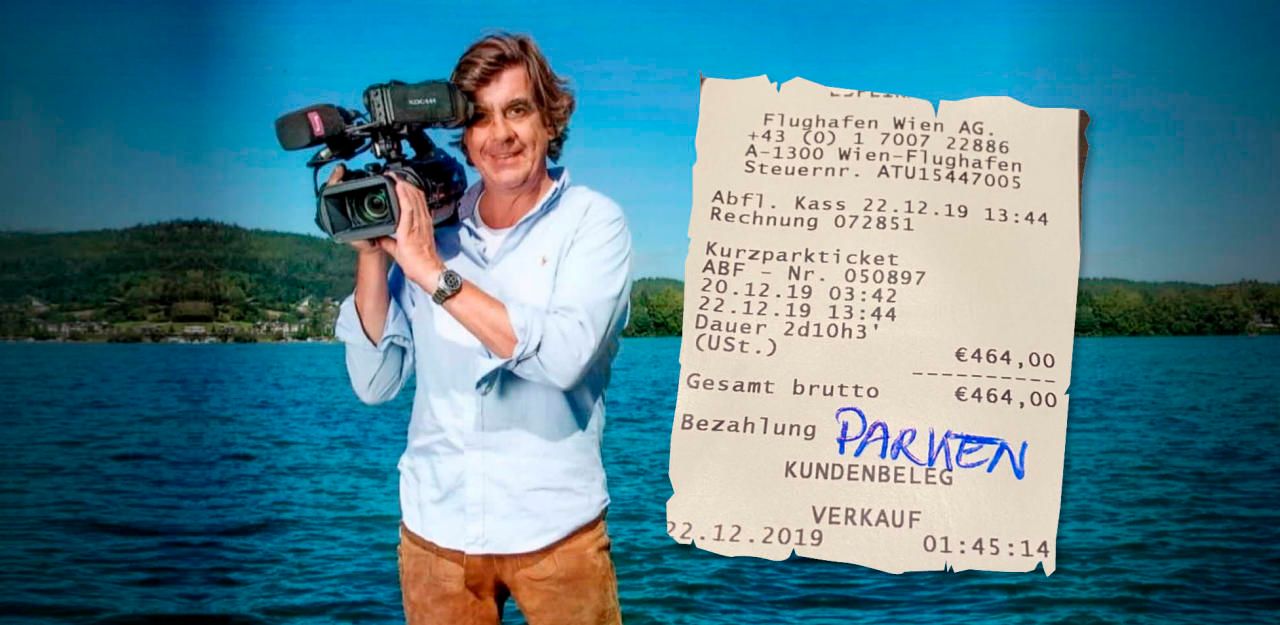 Flughafen Wien AG.
+43 (0) 1 7007 22886
A-1300 Wien-Flughafen
Steuernr. ATU15447005
Abfl. Kass 22.12.19 13:44
Rechnung 072851
Kurzparkticket
ABF - Nr. 050897
20.12.19 03:42
22.12.19 13:44
Dauer 2d10h3'
(USt.) €464,00
----------
Gesamt brutto €464,00
Bezahlung PARKEN
KUNDENBELEG
VERKAUF
22.12.2019 01:45:14